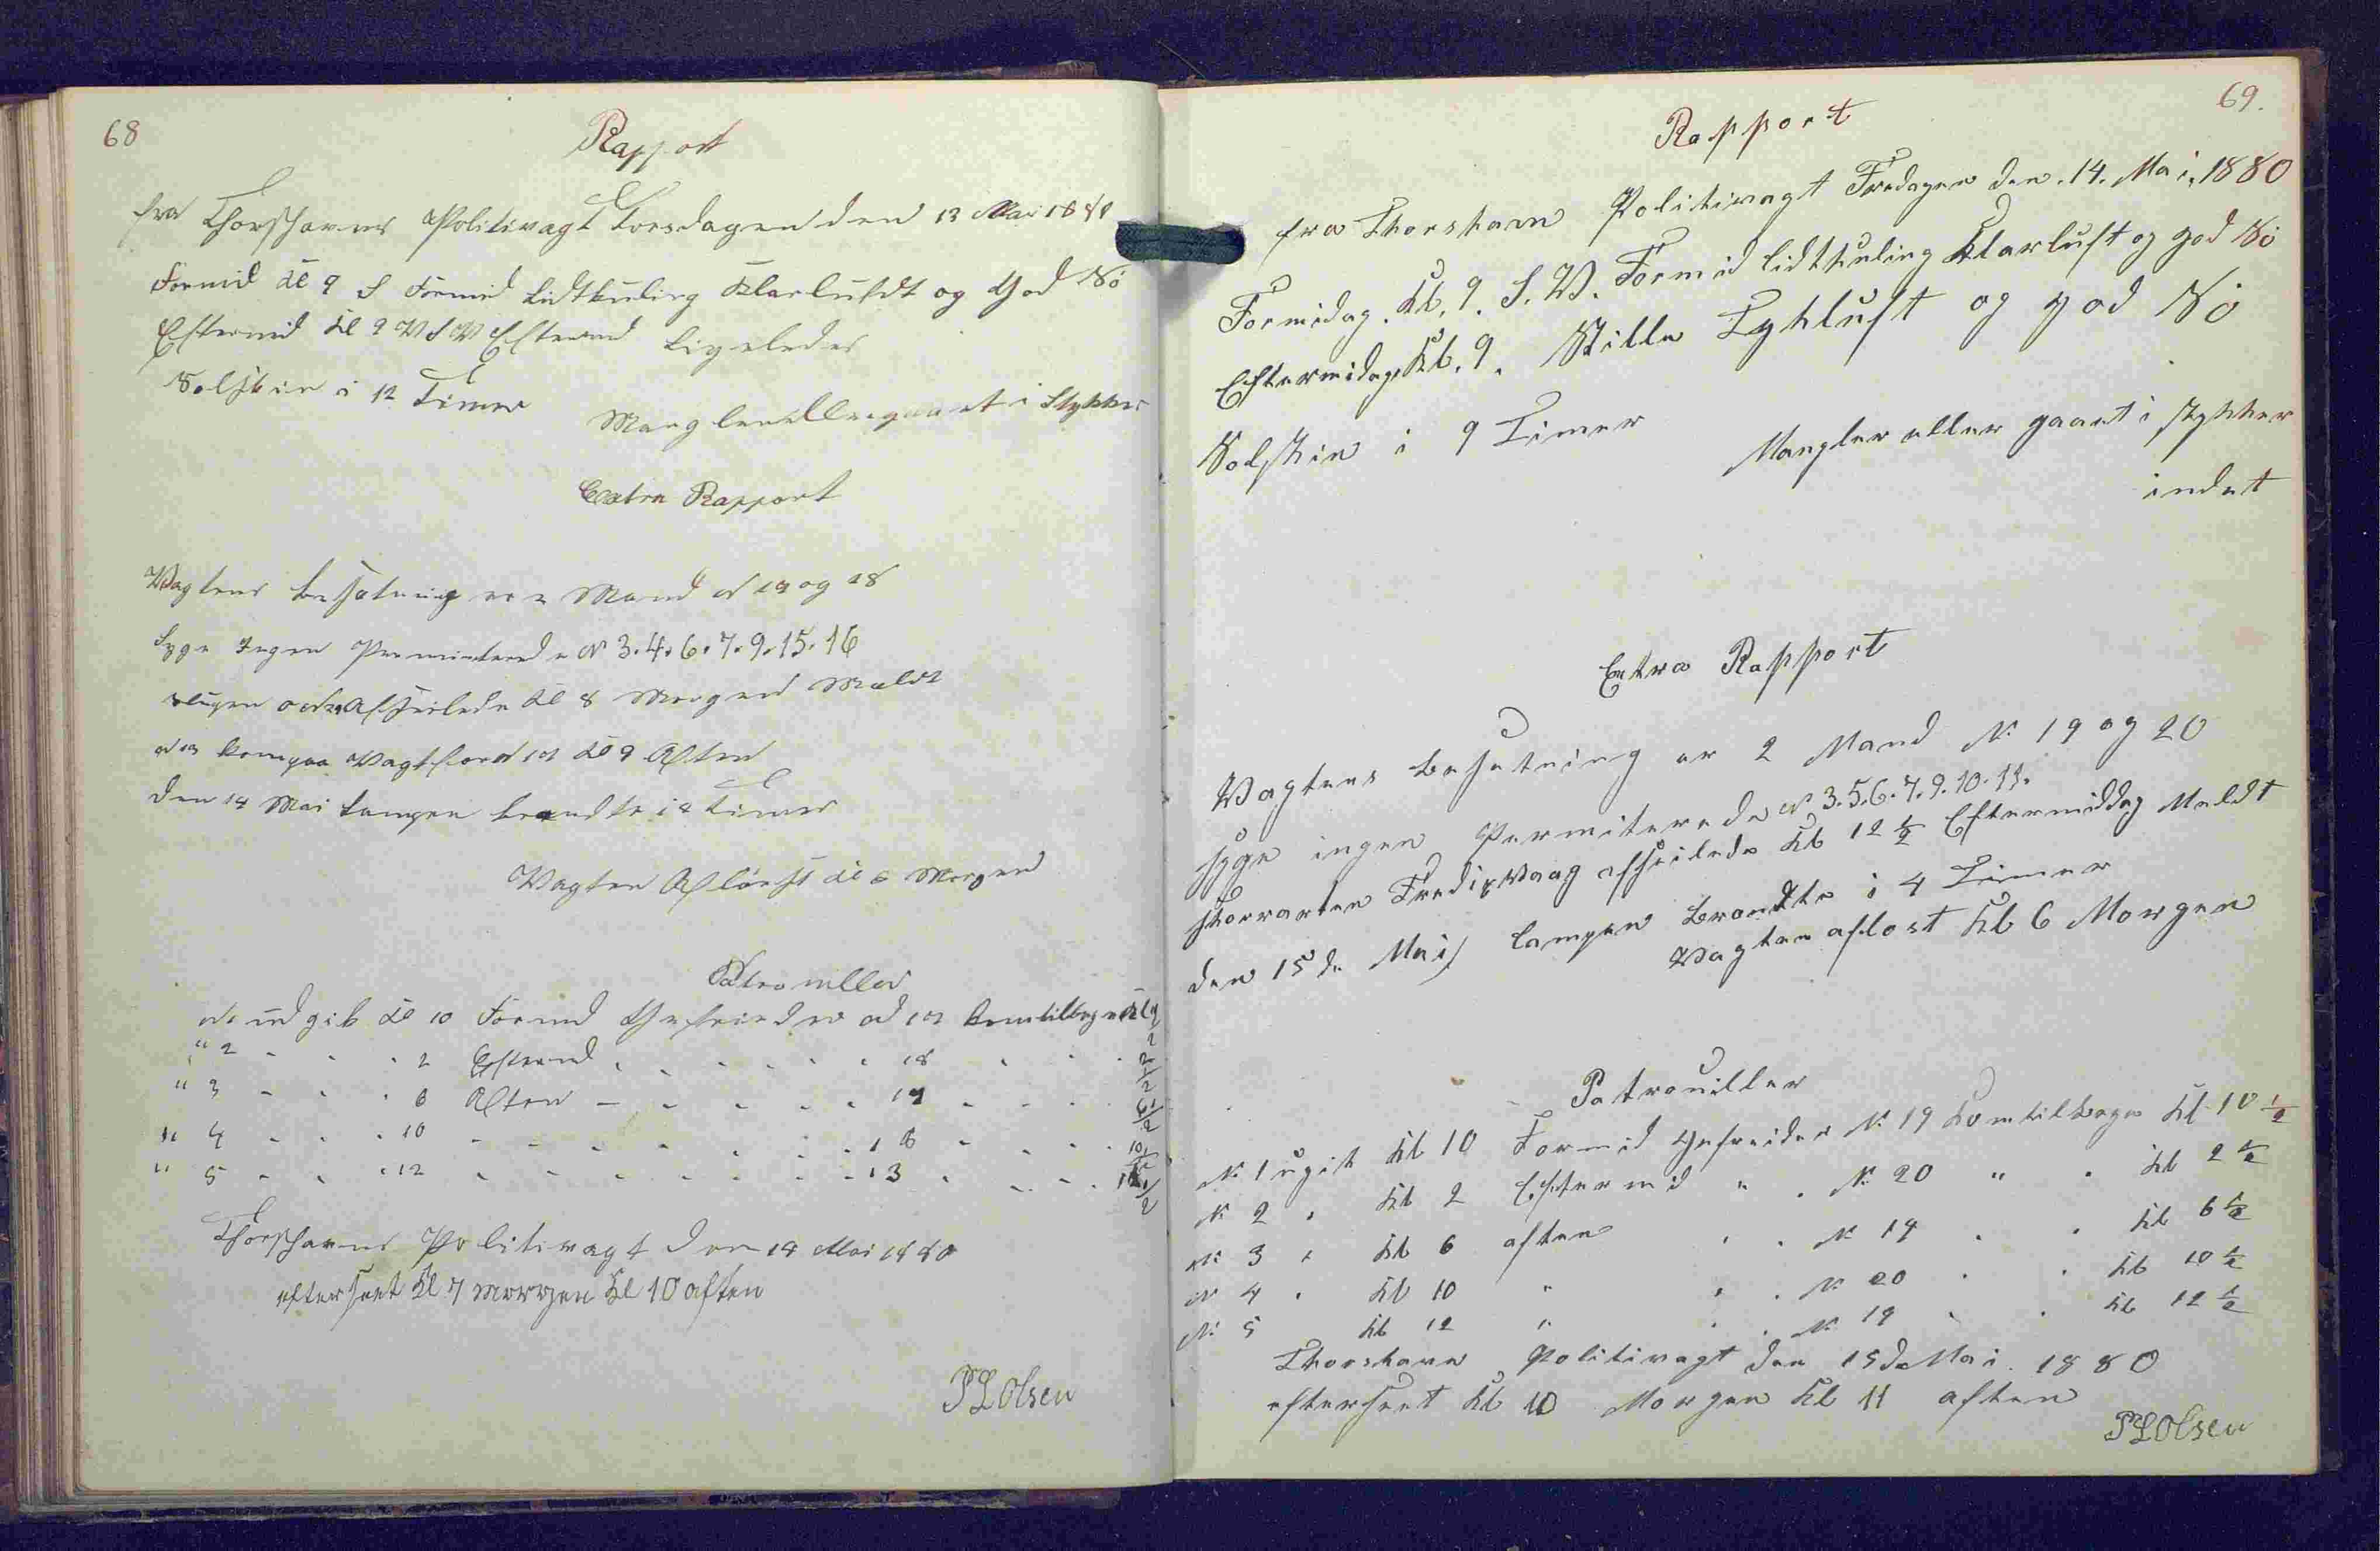 68
Rapport
fra Thorshavns Politivagt Torsdagen den 13 Mai 1880
Formid Kl 9 S Formid Lidtkuling Klarluft og God Sö
Eftermid Kl 9 V S V Eftermid Ligeledes
Solskin i 12 Timer
Mangler eller gaaet i Stykker
Extra Rapport
Vagtens besætning er 2 Mand og 18
Syge Ingen Permiterede N 3.4.6.7.9.15.16
afseilede Kl 8 Morgen Meldt
kom paa Vagt for Kl 9 Aften
Den 14 Mai Lampen brændte i 4 Timer
Vagten Aflöst Kl 6 Morgen
Patrouller
udgik Kl 10 Formid Gefreider kom tilbage Kl
" 2 2 Eftermid 18 2 1/2
" 3 6 Aften 6 1/2
" 4 10 18 10 1/2
" 5 12 13 12 1/2
Thorshavns Politivagt den 14 Mai 1880
efterseet Kl 7 Morgen Kl 10 aften
P L Olsen
69.
Rapport
fra Thorshavn Politivagt Fredagen den. 14. Mai, 1880
Formidag. Kl. 9. S. V. Formid lidtkuling Klarluft og god Sö
Eftermidag Kl. 9. Stille Tykluft og god Sö
Solskin i 9 Timer
Mangler eller gaaet i stykker
indet
Extra Rapport
Vagtens besetning er 2 Mand N: 19 og 20
syge ingen Permiterede N 3.5.6.7.9.10.11.
afseilede Kl 12 1/2 Eftermiddag Meldt
den 15 de Mai lampen brændte i 4 Timer
Vagten aflost Kl 6 Morgen
Patrouiller
N: 1 ugik Kl 10 Formid Gefreider N: 19 komtilbage Kl 10 1/2
N: 2 " Kl 2 Eftermid " " N: 20 " " Kl 2 1/2
N: 3 " Kl 6 aften " " N: 19 " " Kl 6 1/2
N: 4 " Kl 10 " " " N: 20 " " Kl 10 1/2
N: 5 Kl 12 " " " N: 19 " " Kl 12 1/2
Thorshavn Politivagt den 15 de Mai. 1880
efterseet Kl 10 Morgen Kl 11 aften
P L Olsen